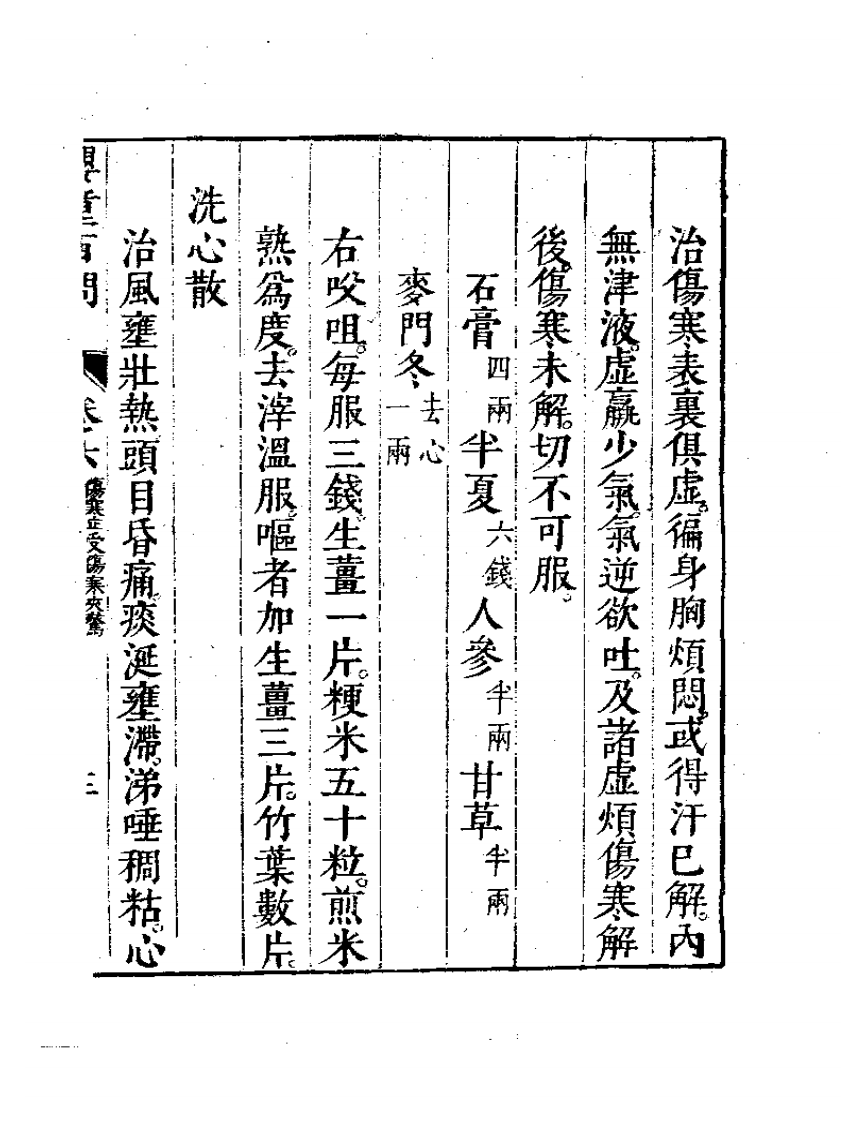 治傷寒表裏俱虛。徧身胸煩悶。或得汗已解。內
無津液。虛羸少氣。氣逆欲吐。及諸虛煩傷寒解
後。傷寒未解。切不可服。
石膏四兩 半夏六錢 人參半兩 甘草半兩
麥門冬去心一兩
右㕮咀。每服三錢。生薑一片。粳米五十粒。煎米
熟爲度。去滓溫服。嘔者加生薑三片。竹葉數片。
洗心散
治風壅壯熱。頭目昏痛。痰涎壅滯。涕唾稠粘。心
嬰童百問 卷六 傷寒正受傷寒夾驚 三